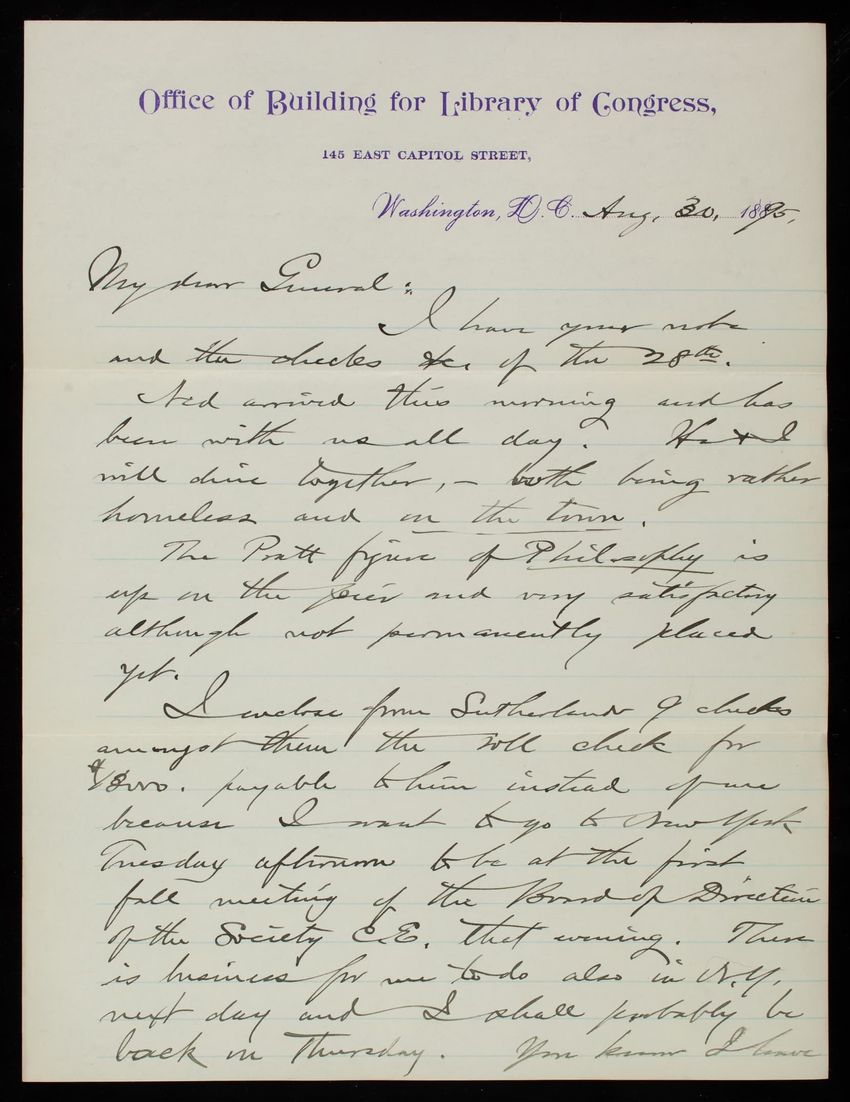 Office of Building for Library of Congress,
145 EAST CAPITOL STREET,
Washington, D.C. Aug. 30, 1895,
My dear General:
I have your note
and the checks &c. of the 28th.
Ned arrived this morning and has
been with us all day. He & I
will dine together, – both being rather
homeless and on the town.
The Pratt figure of Philosophy is
up on the pier and very satisfactory
although not permanently placed
yet.
I enclose from Sutherland 9 checks
amongst them the roll check for
payable to him instead of me
because I want to go to New York
Tuesday afternoon to be at the first
fall meeting of the Board of Direction
of the Society C.E. that evening. There
is business for me to do also in N.Y.
next day and I shall probably be
back on Thursday. You know I have